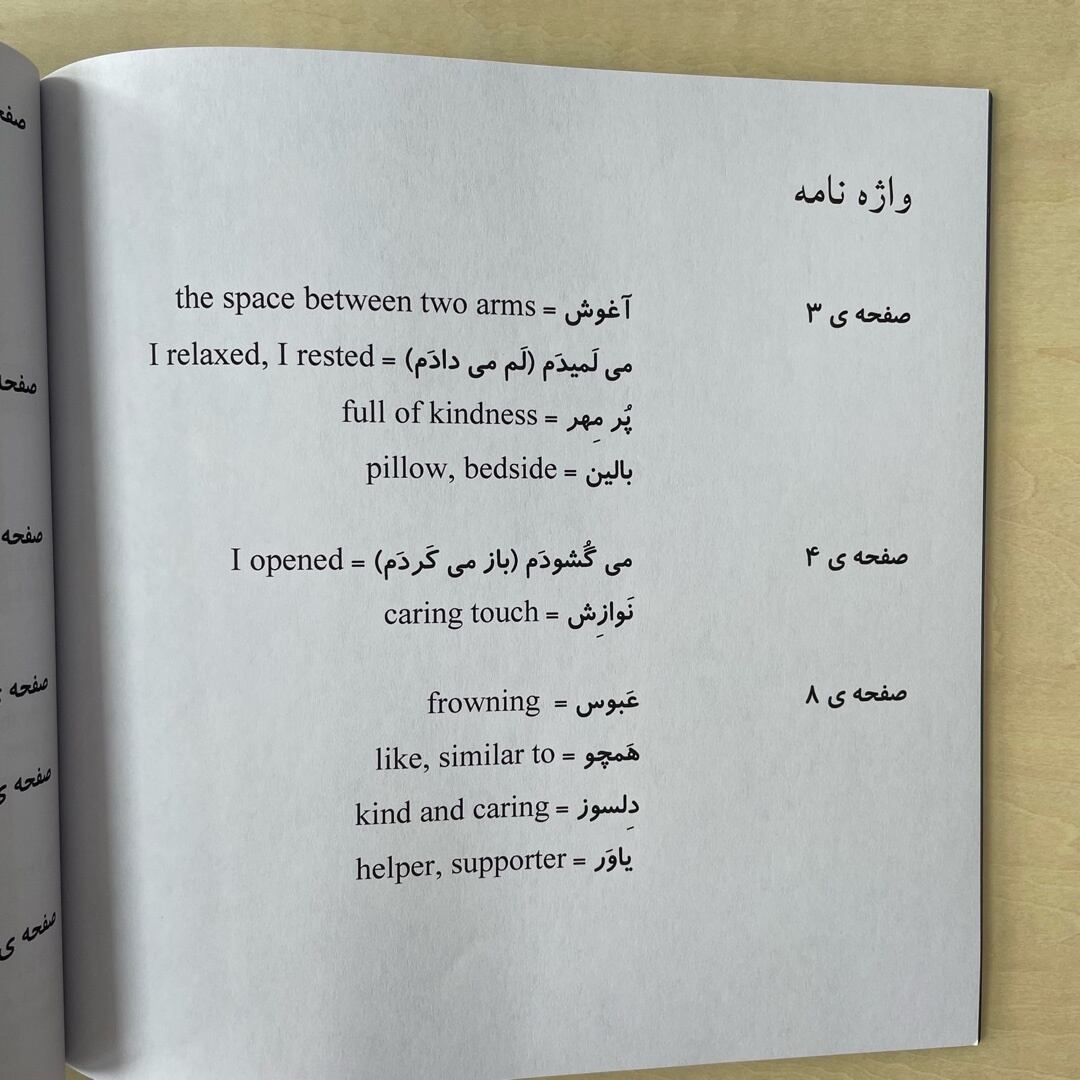 واژه نامه
صفحه ی ۳ آغوش = the space between two arms
می لَمیدَم (لَم می دادَم) = I relaxed, I rested
پُر مِهر = full of kindness
بالین = pillow, bedside
صفحه ی ۴ می گُشودَم (باز می کَردَم) = I opened
نَوازِش = caring touch
صفحه ی ۸ عَبوس = frowning
هَمچو = like, similar to
دِلسوز = kind and caring
یاوَر = helper, supporter
صفحه
صفحه
صفحه ی
صفحه ی
صفحه ی